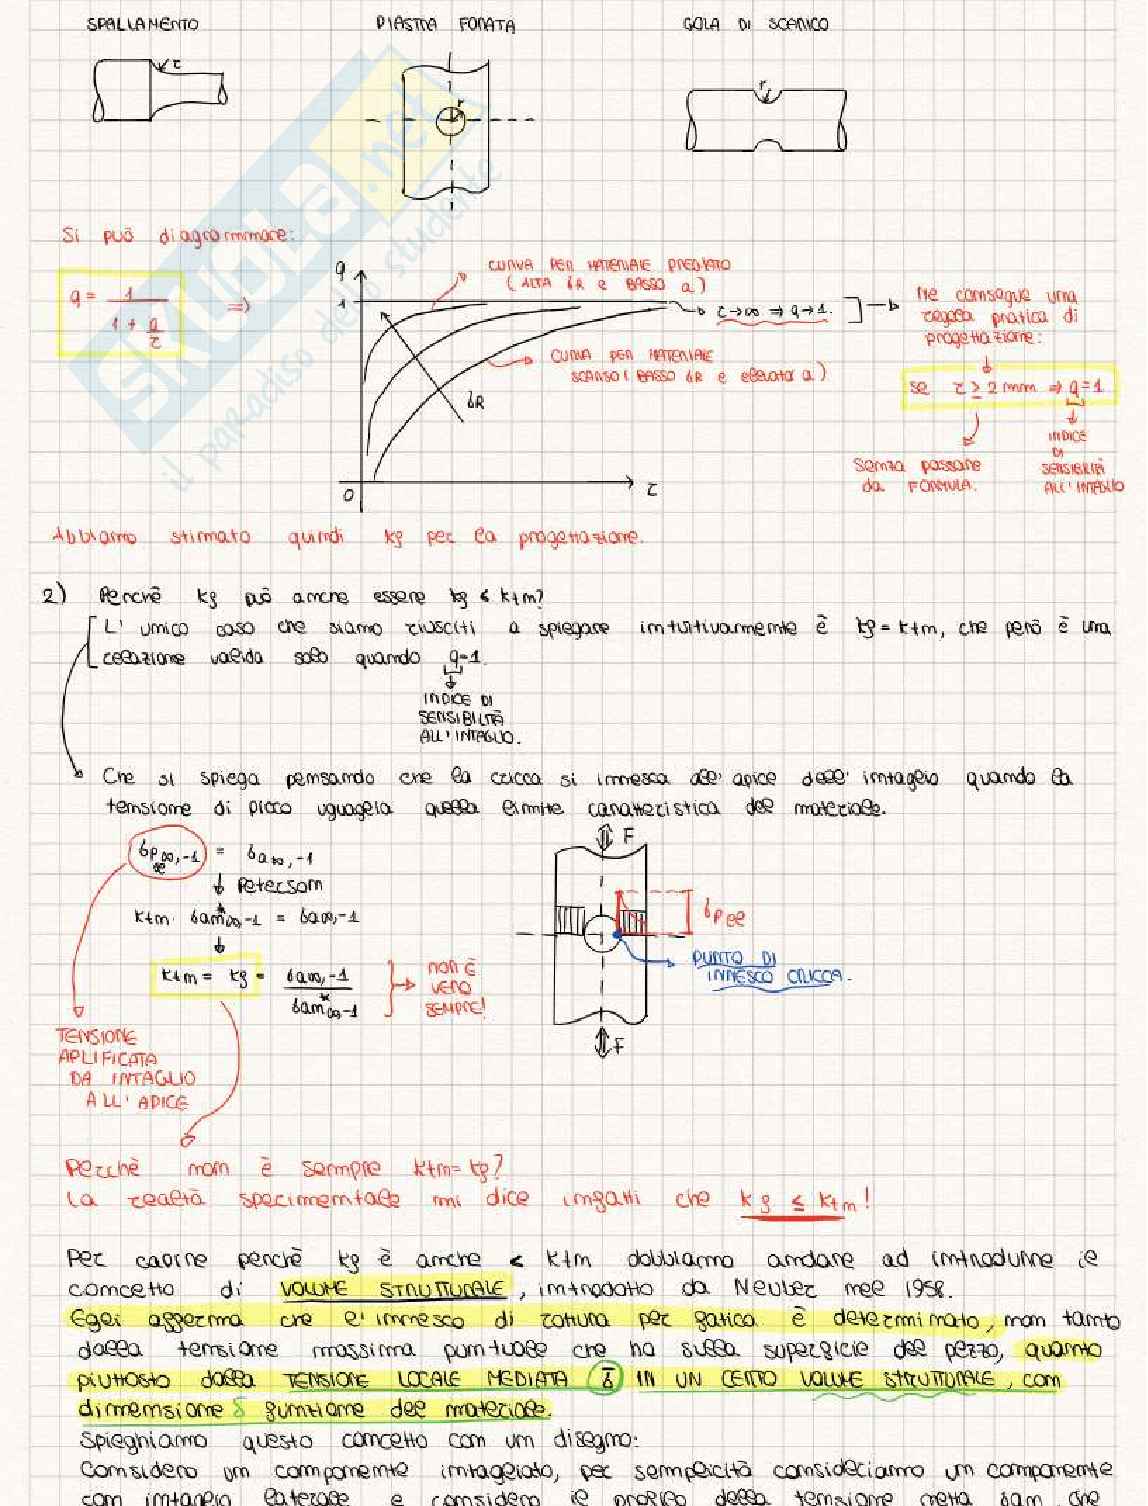 SPALLAMENTO
PIASTRA FORATA
GOLA DI SCARICO
r
r
r
Si può diagrammare:
q = 1 / (1 + a/r) ⇒
q
1
0
r
σR
CURVA PER MATERIALE PREGIATO
( ALTA σR e BASSO a )
r→∞ ⇒ q→1.
CURVA PER MATERIALE
SCARSO ( BASSO σR e elevato a )
Ne consegue una
regola pratica di
progettazione:
se r ≥ 2 mm ⇒ q=1
Senza passare
da FORMULA.
INDICE
DI
SENSIBILITÀ
ALL'INTAGLIO
Abbiamo stimato quindi kf per la progettazione.
2) Perchè kf può anche essere kf < ktm?
L'unico caso che siamo riusciti a spiegare intuitivamente è kf = ktm, che però è una
relazione valida solo quando q=1.
INDICE DI
SENSIBILITÀ
ALL'INTAGLIO.
Che si spiega pensando che la cricca si innesca all'apice dell'intaglio quando la
tensione di picco uguaglia quella limite caratteristica del materiale.
σp∞,-1 = σa∞,-1
el
↓ Peterson
ktm · σam*∞,-1 = σa∞,-1
↓
ktm = kf = σa∞,-1 / σam*∞,-1
NON È
VERO
SEMPRE!
TENSIONE
APLIFICATA
DA INTAGLIO
ALL'APICE
F
σp el
PUNTO DI
INNESCO CRICCA.
F
Perchè non è sempre ktm = kf?
La realtà sperimentale mi dice infatti che kf ≤ ktm!
Per capire perchè kf è anche < ktm dobbiamo andare ad introdurre il
concetto di VOLUME STRUTTURALE, introdotto da Neuber nel 1958.
Egli afferma che l'innesco di rottura per fatica è determinato, non tanto
dalla tensione massima puntuale che ho sulla superficie del pezzo, quanto
piuttosto dalla TENSIONE LOCALE MEDIATA σ̅ IN UN CERTO VOLUME STRUTTURALE, con
dimensione δ funzione del materiale.
Spieghiamo questo concetto con un disegno:
Considero un componente intagliato, per semplicità consideriamo un componente
con intaglio laterale e considero il profilo della tensione netta σam che
SKUOLA.net
il paradiso dello studente